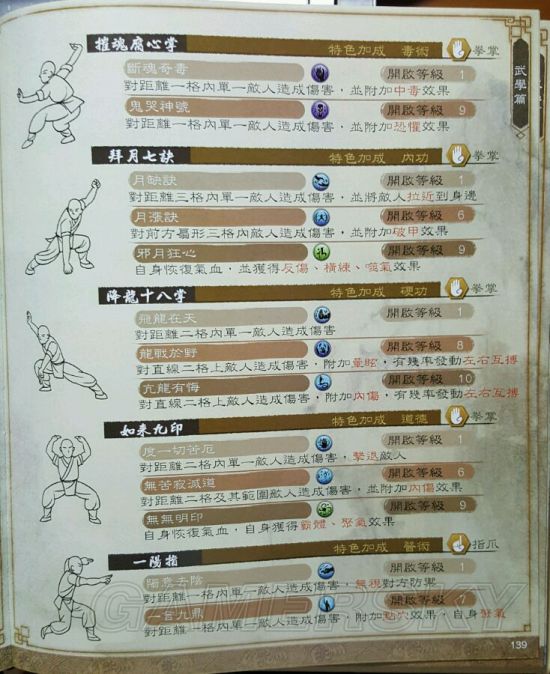 武學篇
摧魂腐心掌 特色加成 毒術 拳掌
斷魂奇毒 開啟等級 1
對距離一格內單一敵人造成傷害，並附加中毒效果
鬼哭神號 開啟等級 9
對距離一格內單一敵人造成傷害，並附加恐懼效果
拜月七訣 特色加成 內功 拳掌
月缺訣 開啟等級 1
對距離三格內單一敵人造成傷害，並將敵人拉近到身邊
月漲訣 開啟等級 6
對前方扇形三格內敵人造成傷害，並附加破甲效果
邪月狂心 開啟等級 9
自身恢復氣血，並獲得反傷、橫練、噬氣效果
降龍十八掌 特色加成 硬功 拳掌
飛龍在天 開啟等級 1
對距離二格內單一敵人造成傷害
龍戰於野 開啟等級 8
對直線二格上敵人造成傷害，附加暈眩，有幾率發動左右互搏
亢龍有悔 開啟等級 10
對直線二格上敵人造成傷害，附加內傷，有幾率發動左右互搏
如來九印 特色加成 道德 拳掌
度一切苦厄 開啟等級 1
對距離二格內單一敵人造成傷害，擊退敵人
無苦寂滅道 開啟等級 6
對距離二格及其範圍敵人造成傷害，並附加內傷效果
無無明印 開啟等級 9
自身恢復氣血，自身獲得霸體、聚氣效果
一陽指 特色加成 醫術 指爪
陽意去陰 開啟等級 1
對距離一格內單一敵人造成傷害，無視對方防禦
一言九鼎 開啟等級 7
對距離一格內單一敵人造成傷害，附加點穴效果，自身聚氣
GAMERSKY
139